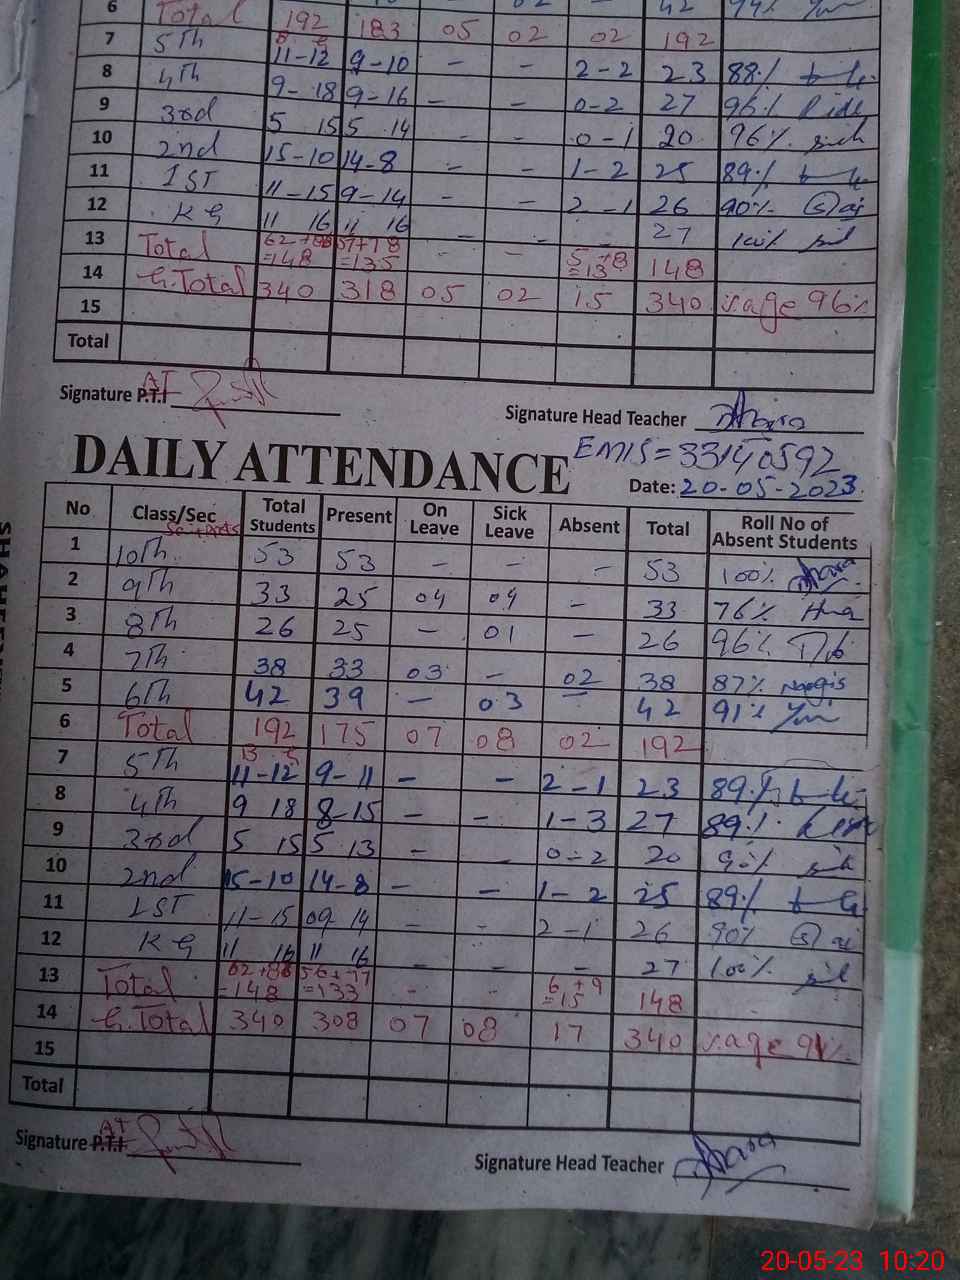 6 Total 192 183 05 02 02 192
7 5th 11-12 9-10 - - 2-2 23 88%
8 4th 9-18 9-16 - - 0-2 27 96%
9 3rd 5 15 5 14 - - 0-1 20 96%
10 2nd 15-10 14-8 - - 1-2 25 89%
11 1ST 11-15 9-14 - - 2-1 26 90%
12 KG 11 16 11 16 - - - 27 100%
13 Total 62+86 57+78 - - 5+8 148
=148 =135 =13
14 G.Total 340 318 05 02 15 340 %age 96%
15
Total
Signature P.T.I AT
Signature Head Teacher
DAILY ATTENDANCE
EMIS=33140592
Date: 20-05-2023
No Class/Sec Total Students Present On Leave Sick Leave Absent Total Roll No of Absent Students
Sc + Arts
1 10th 53 53 - - - 53 100%
2 9th 33 25 04 04 - 33 76%
3 8th 26 25 - 01 - 26 96%
4 7th 38 33 03 - 02 38 87% Nargis
5 6th 42 39 - 03 42 91%
6 Total 192 175 07 08 02 192
7 5th 11-12 9-11 - - 2-1 23 89%
8 4th 9 18 8-15 - - 1-3 27 89%
9 3rd 5 15 5 13 - - 0-2 20 90%
10 2nd 15-10 14-8 - - 1-2 25 89%
11 1ST 11-15 09-14 - - 2-1 26 90%
12 KG 11 16 11 16 - - - 27 100%
13 Total 62+86 56+77 - - 6+9 148
=148 =133 =15
14 G.Total 340 308 07 08 17 340 %age 91%
15
Total
Signature P.T.I AT
Signature Head Teacher
20-05-23 10:20